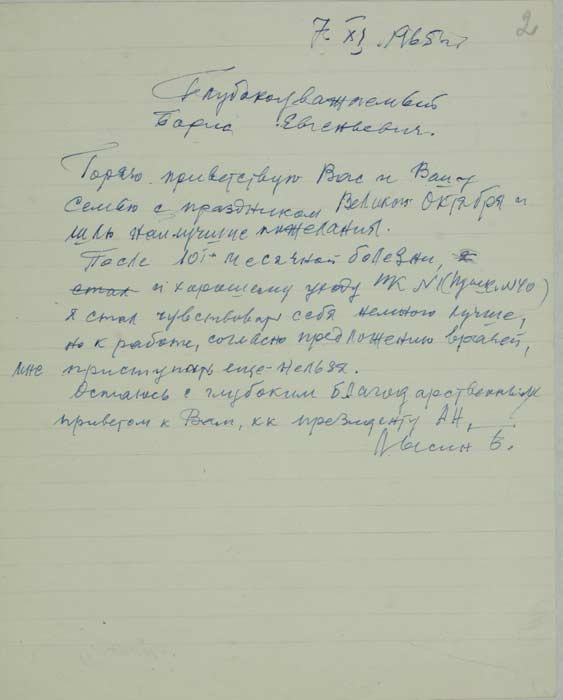 2
7. XI. 1965 г.
Глубокоуважаемый
Борис Евгеньевич.
Горячо приветствую Вас и Вашу
семью с праздником Великого Октября и
шлю наилучшие пожелания.
После 10й месячной болезни,
стал и хорошему уходу №1
я стал чувствовать себя немного лучше,
но к работе, согласно предложению врачей,
мне приступать еще нельзя.
Остаюсь с глубоким благодарственным
приветом к Вам, кк президенту АН,
Лысин Б.